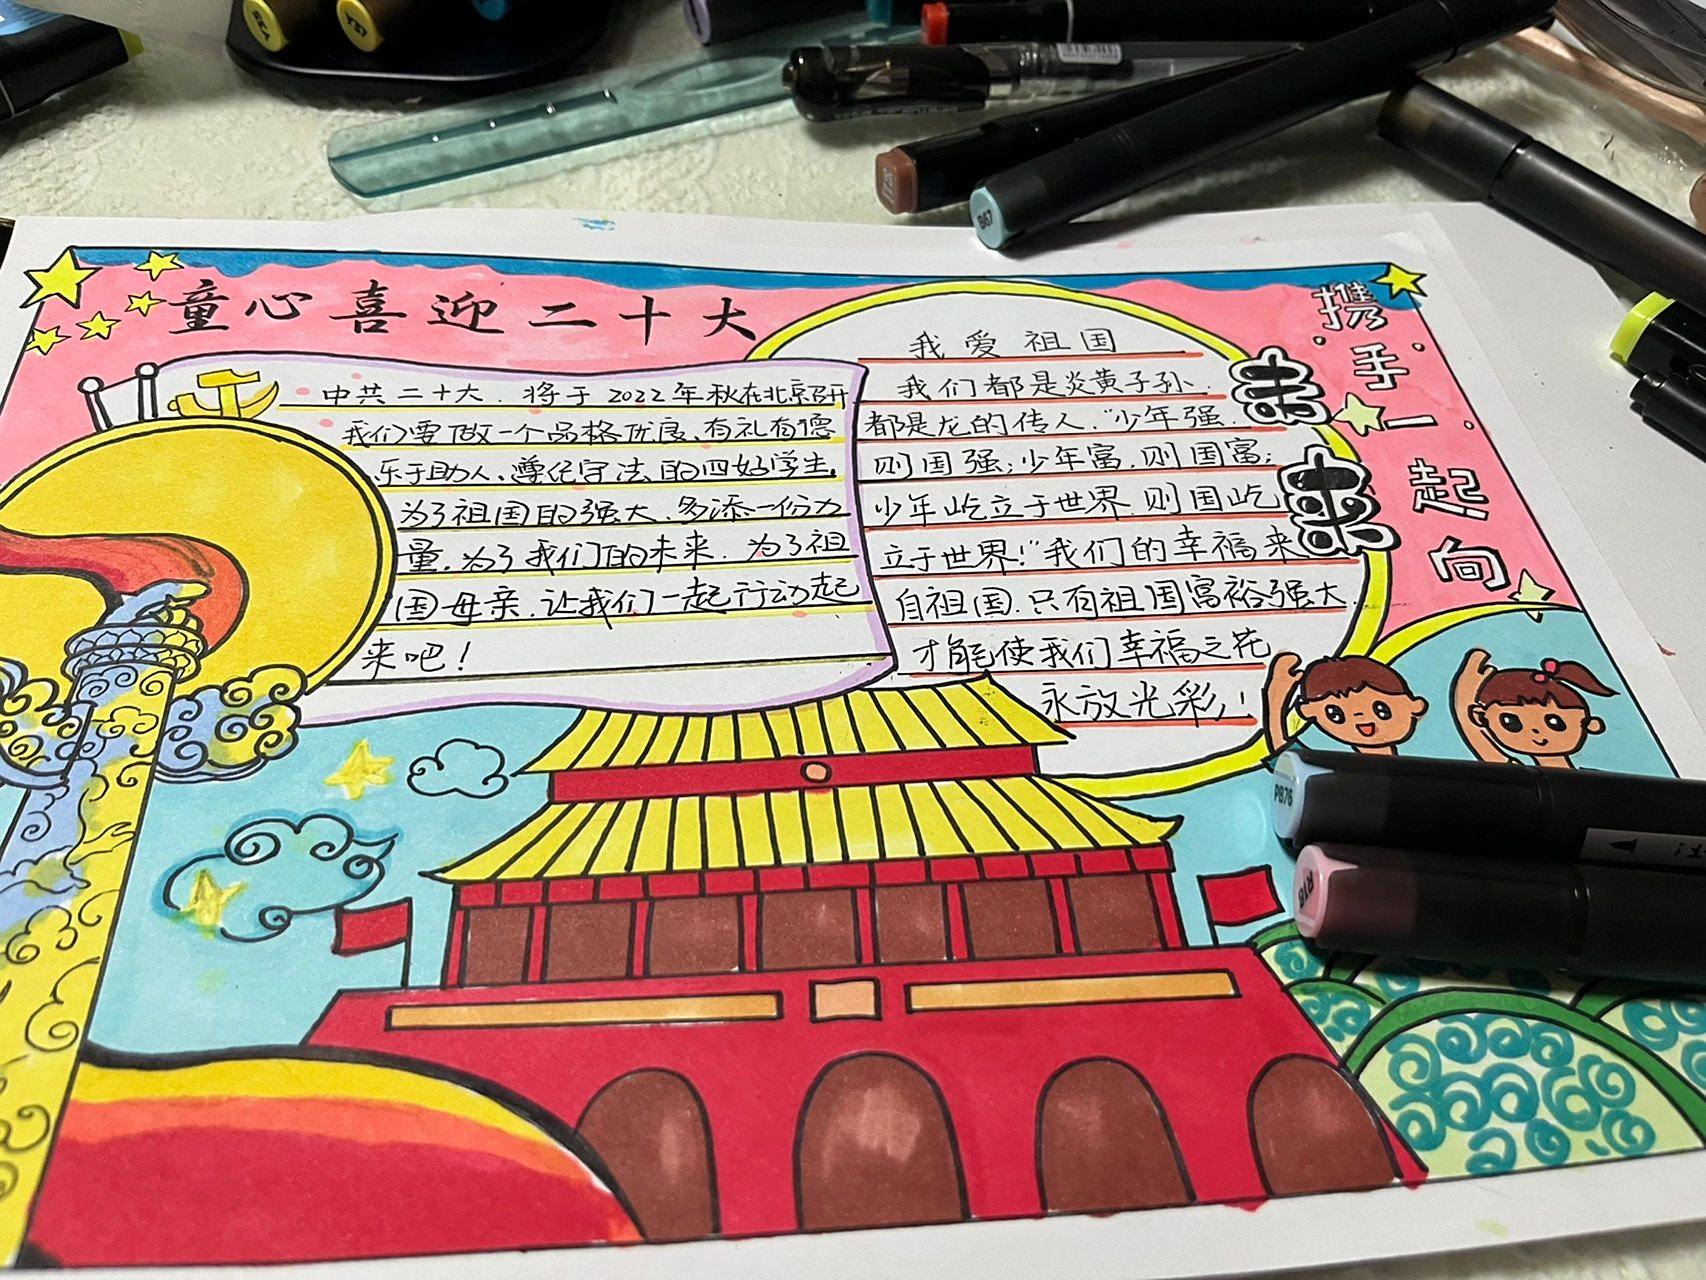 童心喜迎二十大
中共二十大.将于2022年秋在北京召开
我们要做一个品格优良、有礼有德
乐于助人、遵纪守法的四好学生,
为了祖国的强大、多添一份力
量.为了我们的未来.为了祖
国母亲.让我们一起行动起
来吧!
我爱祖国
我们都是炎黄子孙.
都是龙的传人."少年强.
则国强;少年富.则国富;
少年屹立于世界.则国屹
立于世界!"我们的幸福来
自祖国.只有祖国富裕强大.
才能使我们幸福之花
永放光彩!
携手一起向
未来
B67
PB76
R18